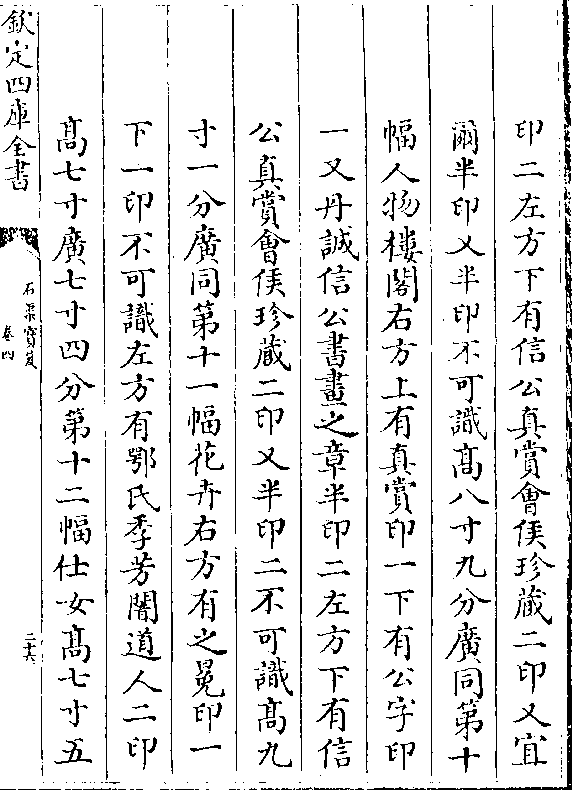 印二左方下有信公真賞會侯珍蔵二印又宜
爾半印又半印不可識髙八寸九分廣同第十
幅人物樓閣右方上有真賞印一下有公字印
一又丹誠信公書畫之章半印二左方下有信
公真賞會侯珍蔵二印又半印二不可識髙九
寸一分廣同第十一幅花卉右方有之冕印一
下一印不可識左方有鄂氏季芳闇道人二印
髙七寸廣七寸四分第十二幅仕女髙七寸五
欽定四庫全書
石渠寶笈
卷四
二十六